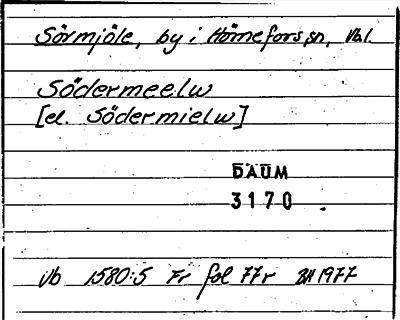 Sörmjöle, by i Hörnefors sn, Vbl.
Södermeelw
[el. Södermielw]
DAUM
3170
Vb 1580:5 Fr fol 77r BH 1977